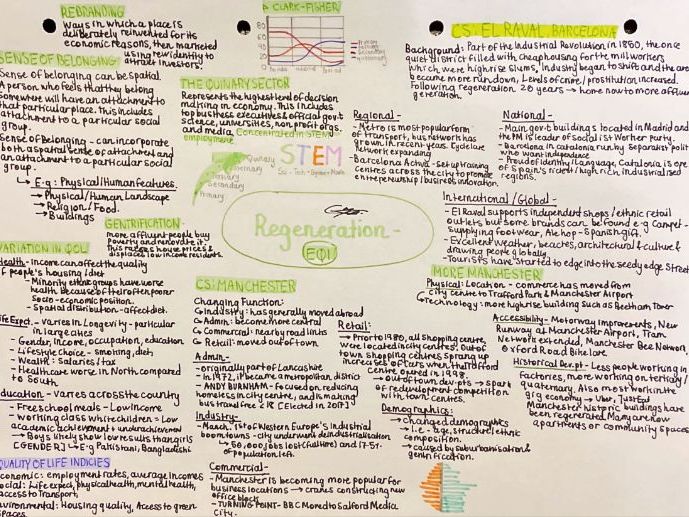 REBRANDING
Ways in which a place is
deliberately reinvented for its
economic reasons, then marketed
using new identity to
attract investors.
SENSE OF BELONGING
Sense of belonging can be spatial.
A person who feels that they belong
somewhere will have an attachment to
that particular place. This includes
attachment to a particular social
group.
Sense of Belonging - can incorporate
both a spatial sense of attachment and
an attachment to a particular social
group.
↳ E.g: Physical/Human features.
→ Physical/Human Landscape
→ Religion/Food.
→ Buildings
GENTRIFICATION
more affluent people buy
poverty and renovate it.
This raises house prices &
displaces low income residents.
VARIATION IN QOL
Health - income can affect the quality
of people's housing/diet
- Minority ethnic groups have worse
health because of their often poorer
socio-economic position.
- Spatial distribution - affect diet.
Life Expct. - varies in Longevity - particular
in large cities
- Gender, income, occupation, education
- Lifestyle choice - smoking, diet
- Wealth: Salaries/tax
- Healthcare worse in North compared
to South
Education - varies across the country
- Free school meals - Low income
- working class white children = Low
academic achievement + underachievement
→ Boys likely show low results than girls
[GENDER] ↳ E.g Pakistani, Bangladeshi
QUALITY OF LIFE INDICIES
Economic: employment rates, average incomes
Social: Life expect, physical health, mental health,
access to transport,
Environmental: Housing quality, Access to green
spaces
CLARK-FISHER
80
60
40
20
THE QUINARY SECTOR
Represents the highest level of decision
making in economy. This includes
top business executives & official gov't
science, universities, non profit orgs.
and media. Concentrated in STEM
employment
Quinary
Tertiary
Secondary
Primary
STEM
Regeneration -
EQ1
CS: MANCHESTER
Changing Function:
↳ Industry: has generally moved abroad
↳ Admin: become more central
↳ Commercial: near by road links
↳ Retail: moved out of town
Admin -
- originally part of Lancashire
- In 1972, it became a metropolitan district
- ANDY BURNHAM - focused on reducing
homeless in city centre, and is making
bus travel free <18 [Elected in 2017]
Industry -
- March. 1st of Western Europe's Industrial
boomtowns - city underwent deindustrialisation
↳ 50,000 jobs lost (culture) and 17.5%
of population left.
Commercial -
- Manchester is becoming more popular for
business locations → cranes constructing new
office blocks
- TURNING POINT - BBC Moved to Salford Media
City -
Retail:
→ Prior to 1980, all shopping centre
were located in city centres. Out of
town shopping centres sprang up
increase of cars when the Trafford
Centre opened in 1998.
→ out of town dev. pts → spark
of redevelopment competition
with town centres.
Demographics:
→ changed demographics
→ i.e - age, structure, ethnic
composition.
→ caused by suburbanisation &
gentrification.
CS: EL RAVAL, BARCELONA
Background: Part of the Industrial Revolution in 1850, the once
quiet district filled with cheap housing for the mill workers
which were high rise slums, industry began to shift and the area
became more run down, Levels of crime/prostitution increased.
Following regeneration 20 years → home now to more affluent
generation.
Regional -
- Metro is most popular form
of transport, bus network has
grown in recent years. Cycle lane
network expanding
- Barcelona Activa - Set up training
centres across the city to promote
entrepreneurship/business innovation.
National -
- Main gov't buildings located in Madrid and
the PM is leader of socialist Worker party.
- Barcelona in catalonia run by separatist politic
who want independence
- Proud of identity/Language, Catalonia is one
of Spain's richest/high rich, industrialised
regions.
International/Global -
- El Raval supports independent shops/ethnic retail
outlets, but some brands can be found e.g Camper -
supplying footwear, Ale-hop - Spanish gift.
- Excellent weather, beaches, architectural & culture &
drawing people globally.
- Tourists have started to edge into the seedy edge streets
MORE MANCHESTER
Physical: Location - commerce has moved from
city centre to Trafford Park & Manchester Airport
↳ Technology: more highrise building such as Beetham Tower
Accessibility - Motorway Improvements, New
Runway at Manchester Airport, Tram
Network extended, Manchester Bee Network
Oxford Road Bike lane
Historical Dev. pt - Less people working in
factories, more working on tertiary/
quaternary. Also most work in the
gig economy → Uber, Just Eat
Manchester historic buildings have
been regenerated. Many are now
apartments or community spaces